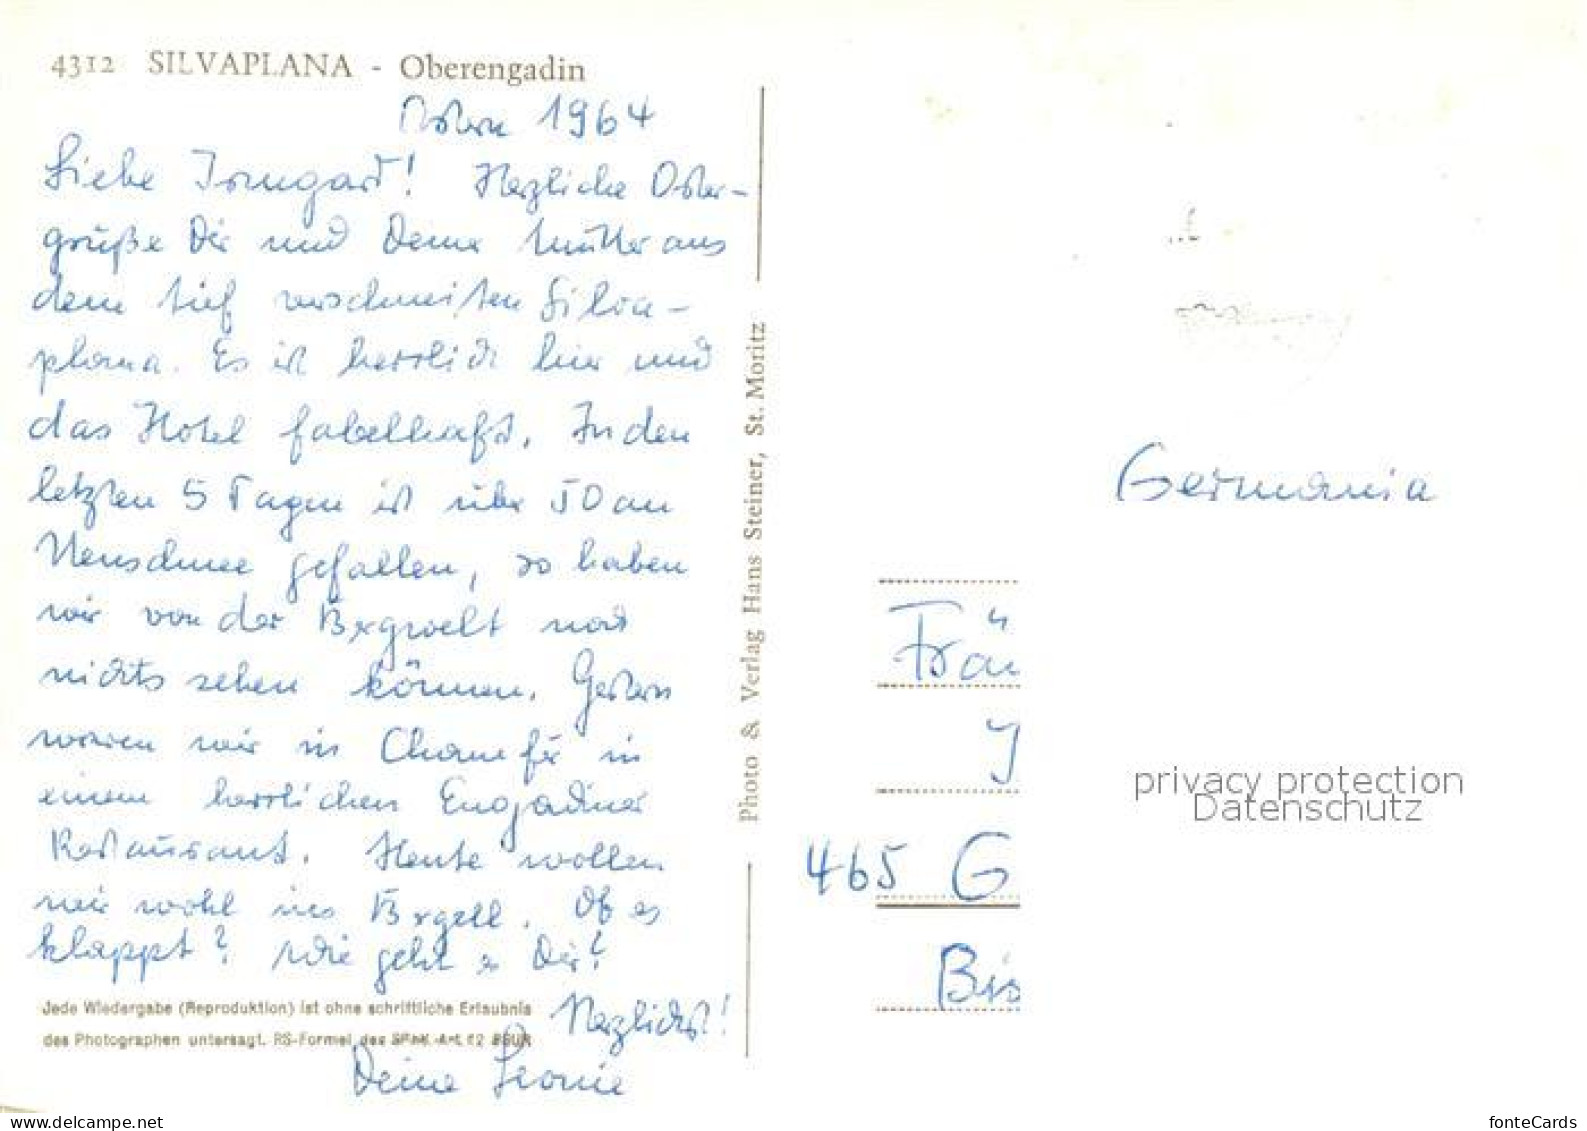 4312 SILVAPLANA - Oberengadin
Ostern 1964
Liebe Irmgard! Herzliche Oster-
grüße Dir und Deiner Mutter aus
dem tief verschneiten Silva-
plana. Es ist herrlich hier und
das Hotel fabelhaft. In den
letzten 5 Tagen ist über 50 cm
Neuschnee gefallen, so haben
wir von der Bergwelt noch
nichts sehen können. Gestern
waren wir in Chamfèr in
einem herrlichen Engadiner
Restaurant. Heute wollen
wir wohl ins Bergell. Ob es
klappt? Wie geht es Dir?
Herzlichst!
Deine Leonie
Jede Wiedergabe (Reproduktion) ist ohne schriftliche Erlaubnis
des Photographen untersagt. RS-Formel des
Photo & Verlag Hans Steiner, St. Moritz
Germania
Fräu
J
465 G
Bis
privacy protection
Datenschutz
www.delcampe.net
fonteCards